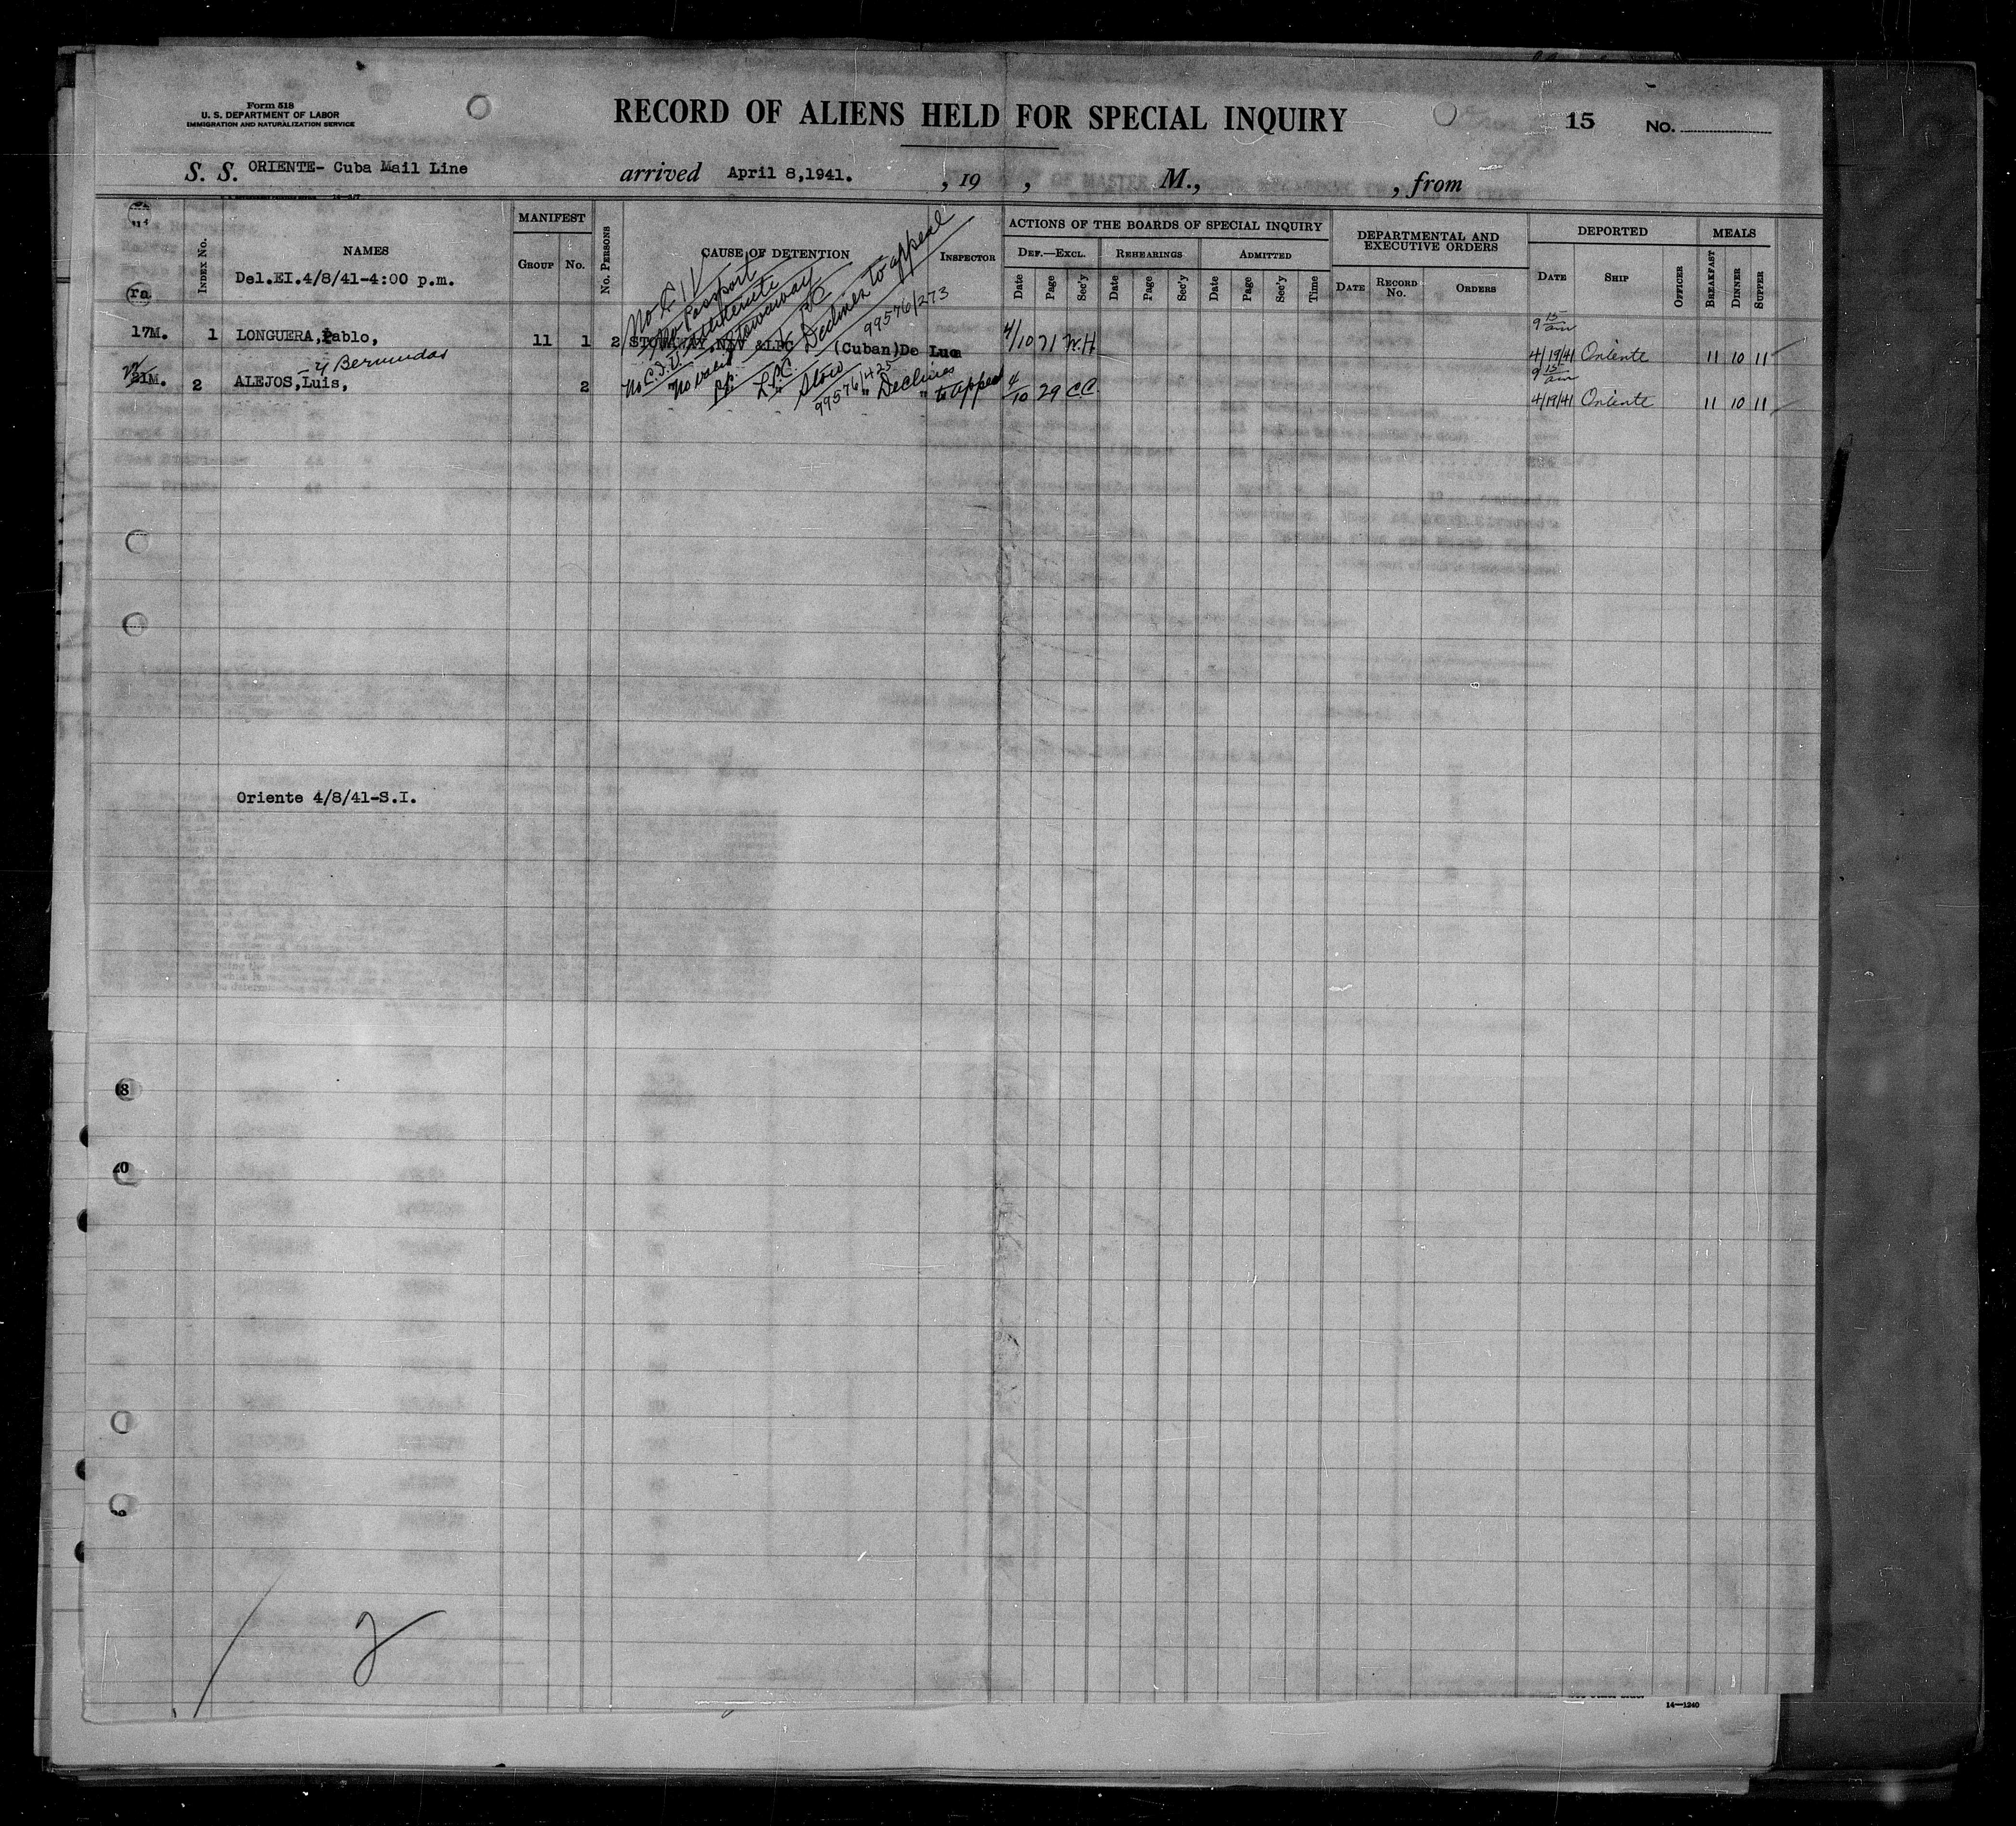 Form 518
U. S. DEPARTMENT OF LABOR
IMMIGRATION AND NATURALIZATION SERVICE
RECORD OF ALIENS HELD FOR SPECIAL INQUIRY
15 No.
S. S. ORIENTE- Cuba Mail Line arrived April 8,1941. , 19 , M., , from
INDEX No.
NAMES
MANIFEST
GROUP No.
No. PERSONS
CAUSE OF DETENTION
INSPECTOR
ACTIONS OF THE BOARDS OF SPECIAL INQUIRY
DEF.—EXCL. REHEARINGS ADMITTED
Date Page Sec'y Date Page Sec'y Date Page Sec'y Time
DEPARTMENTAL AND
EXECUTIVE ORDERS
DATE RECORD No. ORDERS
DEPORTED
DATE SHIP OFFICER
MEALS
BREAKFAST DINNER SUPPER
Del.EI.4/8/41-4:00 p.m.
ra
No Passport
Stowaway
Declines to appeal
99576/273
9 15 am
17M. 1 LONGUERA,Pablo, 11 1 2 STOWAWAY (Cuban)De Luca 4/10 21 4/19/41 Oriente 11 10 11
y Bermudas
9 15 am
21M. 2 ALEJOS,Luis, 2 No C.I.V. No valid PP. L.P.C. Stow 99576/425 " Declines " to appeal 4/10 29 C.C. 4/19/41 Oriente 11 10 11
Oriente 4/8/41-S.I.
2
14—1240